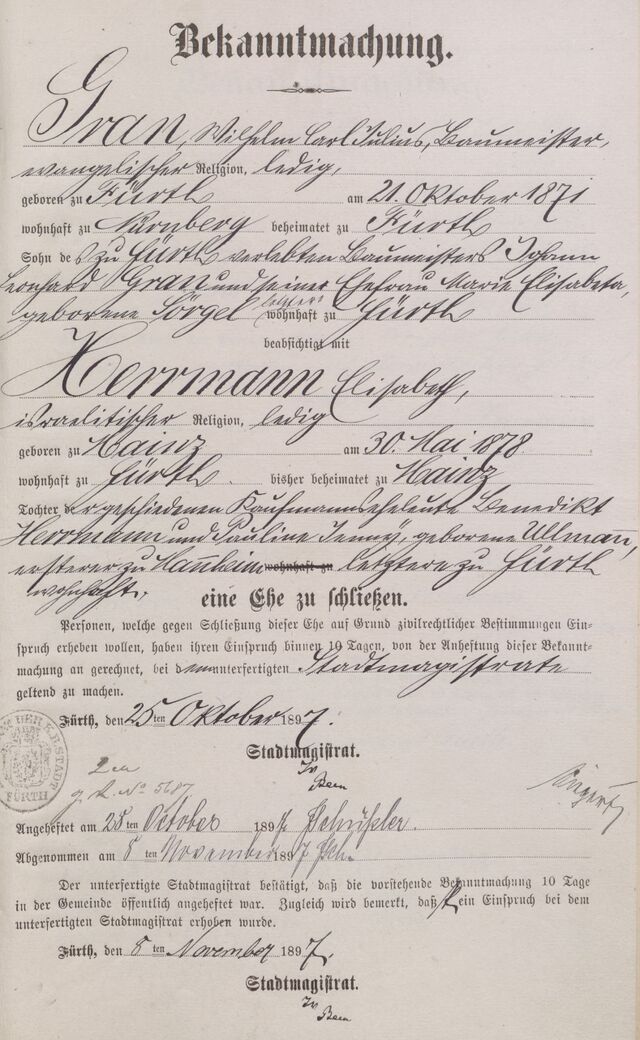 Bekanntmachung.
Gran, Wilhelm Carl Julius, Baumeister,
evangelischer Religion, ledig,
geboren zu Fürth am 21. Oktober 1871
wohnhaft zu Nürnberg beheimatet zu Fürth
Sohn des zu Fürth verlebten Baumeisters Johann
Leonhard Gran und seiner Ehefrau Marie Elisabeta,
geborene Sörgel letztere wohnhaft zu Fürth
beabsichtigt mit
Herrmann Elisabeth,
israelitischer Religion, ledig
geboren zu Mainz am 30. Mai 1878
wohnhaft zu Fürth. bisher beheimatet zu Mainz
Tochter der geschiedenen Kaufmannseheleute Benedikt
Herrmann und Pauline Jenny, geborene Ullmann,
ersterer zu Mannheim wohnhaft zu letztere zu Fürth
wohnhaft,
eine Ehe zu schließen.
Personen, welche gegen Schließung dieser Ehe auf Grund zivilrechtlicher Bestimmungen Ein-
spruch erheben wollen, haben ihren Einspruch binnen 10 Tagen, von der Anheftung dieser Bekannt-
machung an gerechnet, bei dem unterfertigten Stadtmagistrate
geltend zu machen.
Fürth, den 25ten Oktober 1897.
Stadtmagistrat.
DER K.B. STADT
FÜRTH
No 5687
Angeheftet am 28ten October 1897. Schüßler.
Abgenommen am 8ten November 1897 Sch.
Der unterfertigte Stadtmagistrat bestätigt, daß die vorstehende Bekanntmachung 10 Tage
in der Gemeinde öffentlich angeheftet war. Zugleich wird bemerkt, daß kein Einspruch bei dem
unterfertigten Stadtmagistrat erhoben wurde.
Fürth, den 8ten November 1897.
Stadtmagistrat.